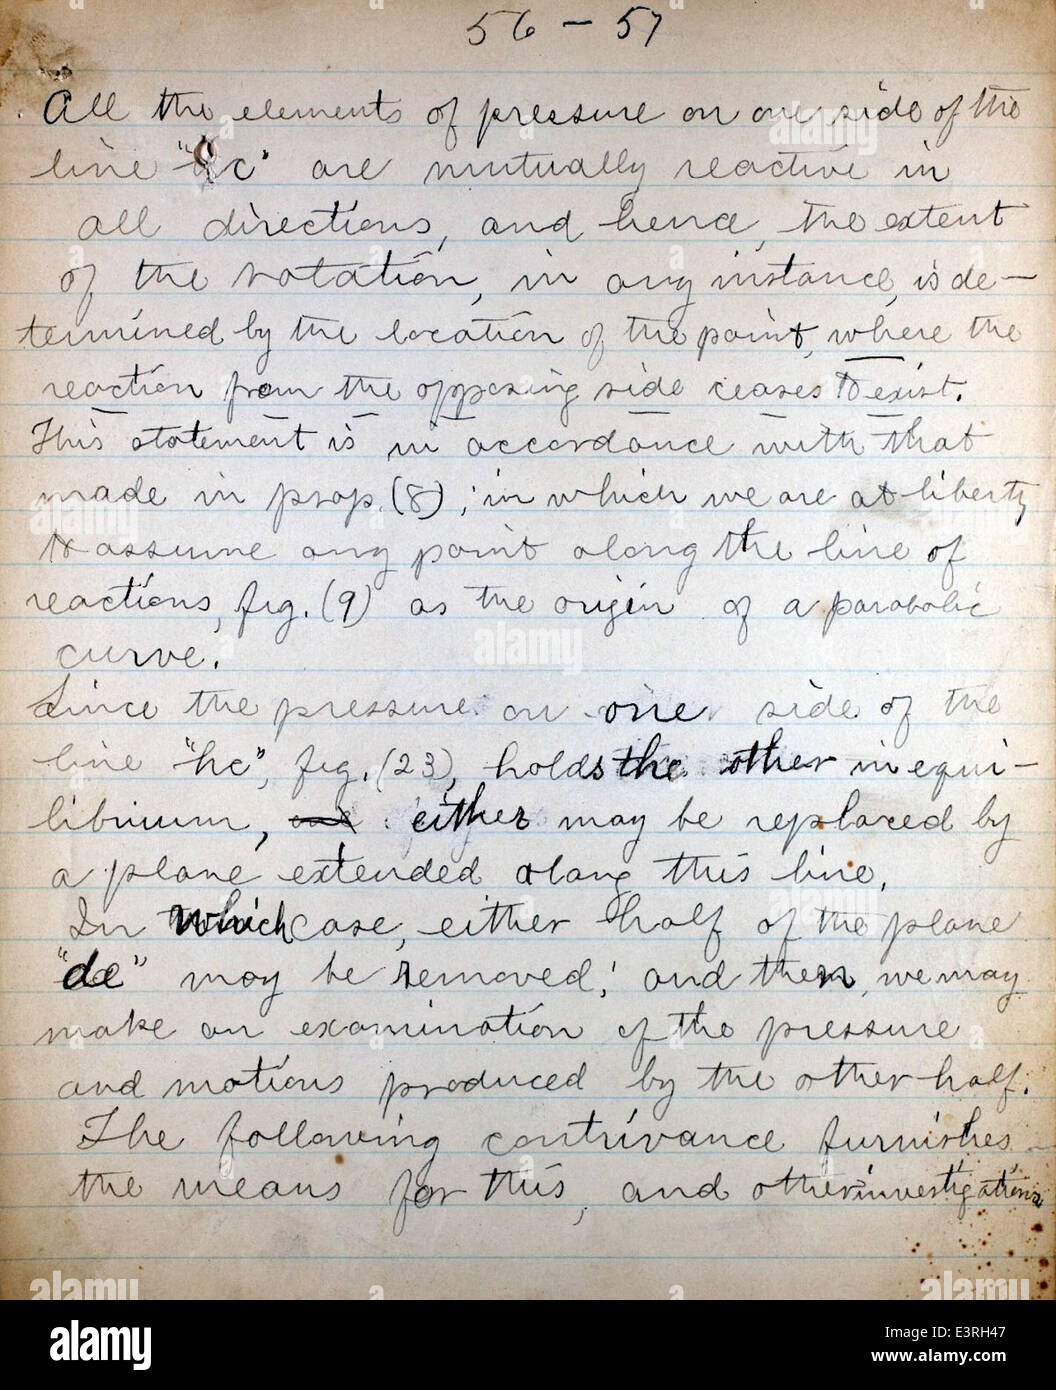 56 – 57
All the elements of pressure on one side of the
line "hc" are mutually reactive in
all directions, and hence, the extent
of the rotation, in any instance, is de-
termined by the location of the point, where the
reaction from the opposing side ceases to exist.
This statement is in accordance with that
made in prop. (8); in which we are at liberty
to assume any point along the line of
reactions, fig. (9) as the origin of a parabolic
curve.
Since the pressure on one side of the
line "hc", fig. (23), holds the other in equi-
librium, either may be replaced by
a plane extended along this line.
In which case, either half of the plane
"de" may be removed; and then, we may
make an examination of the pressure
and motions produced by the other half.
The following contrivance furnishes
the means for this, and other investigations
alamy
a
alamy
Image ID: E3RH47
www.alamy.com